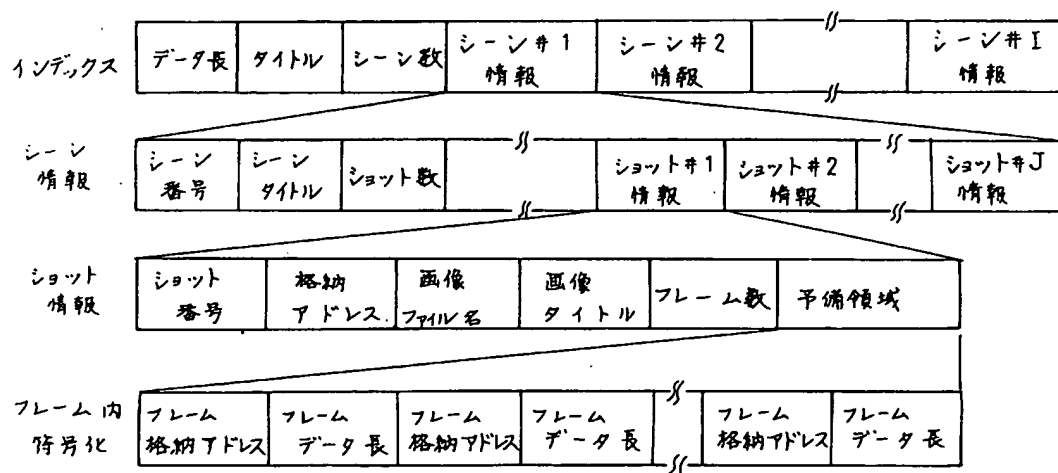 インデックス
データ長
タイトル
シーン数
シーン#1
情報
シーン#2
情報
シーン#I
情報
シーン
情報
シーン
番号
シーン
タイトル
ショット数
ショット#1
情報
ショット#2
情報
ショット#J
情報
ショット
情報
ショット
番号
格納
アドレス
画像
ファイル名
画像
タイトル
フレーム数
予備領域
フレーム内
符号化
フレーム
格納アドレス
フレーム
データ長
フレーム
格納アドレス
フレーム
データ長
フレーム
格納アドレス
フレーム
データ長